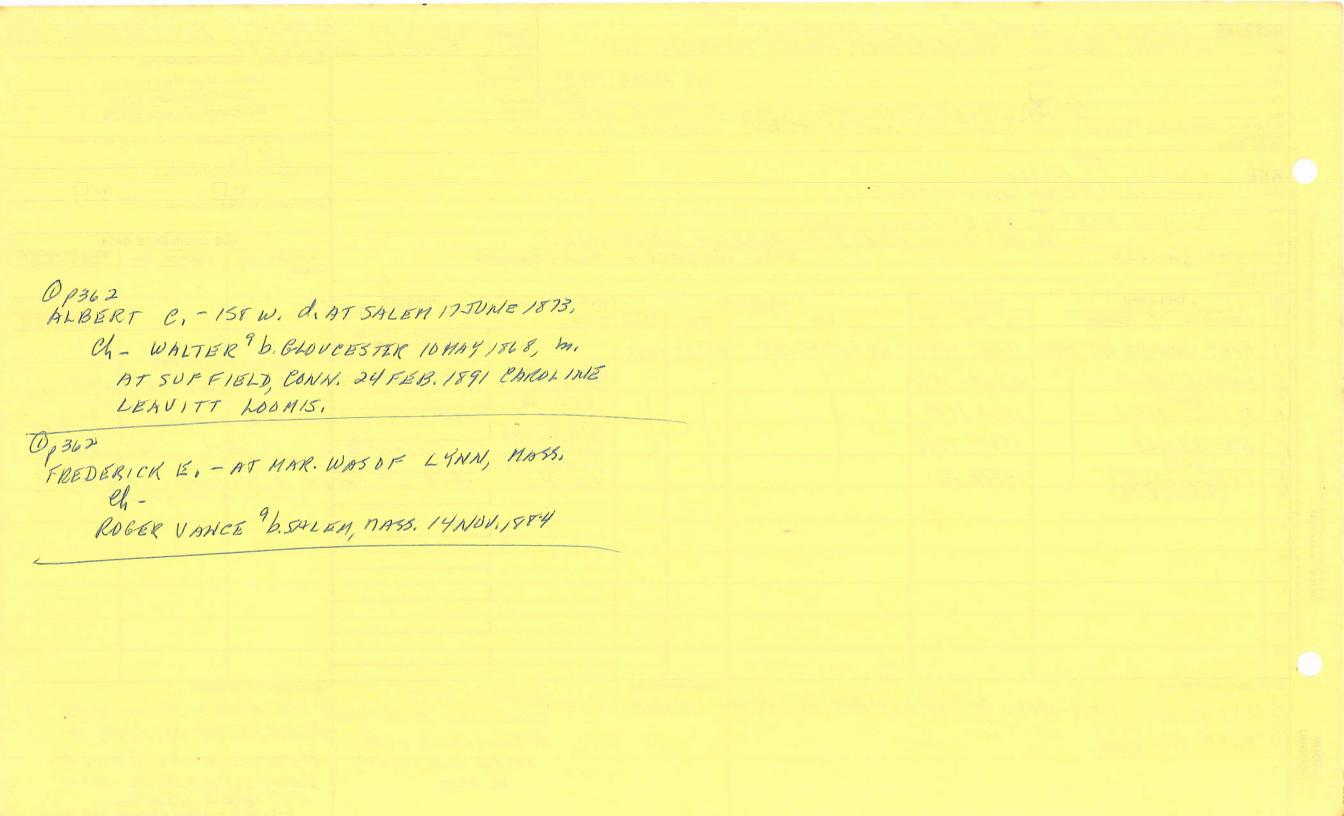 ① p362
ALBERT C. - 1ST W. d. AT SALEM 17 JUNE 1873.
Ch - WALTER⁹ b. GLOUCESTER 10 MAY 1868, m.
AT SUFFIELD, CONN. 24 FEB. 1891 CAROLINE
LEAVITT LOOMIS.
① p362
FREDERICK E. - AT MAR. WAS OF LYNN, MASS.
Ch -
ROGER VANCE⁹ b. SALEM, MASS. 14 NOV. 1884